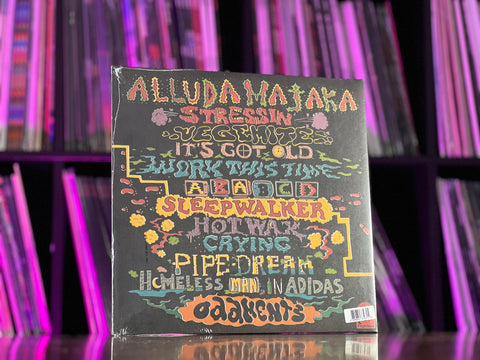 ALLUDA MAJAKA
STRESSIN
VEGEMITE
IT'S GOT OLD
WORK THIS TIME
ABABCD
SLEEPWALKER
HOT WAX
CRYING
PIPE-DREAM
HOMELESS MAN IN ADIDAS
ODDMENTS